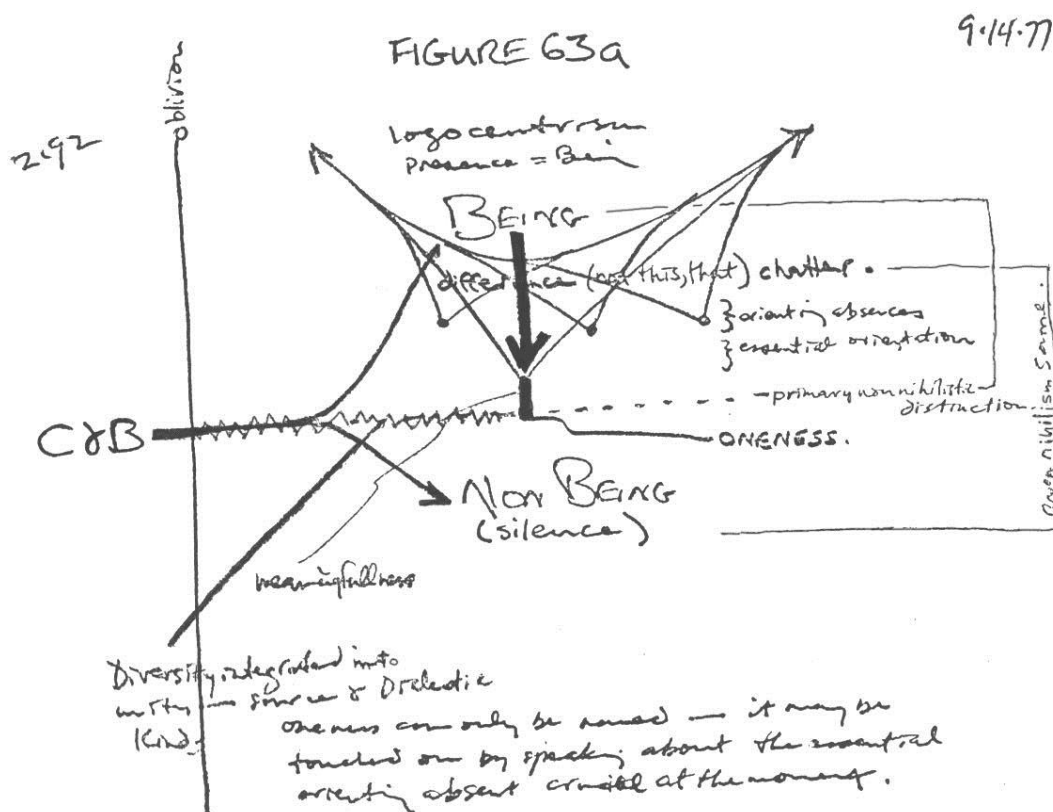 FIGURE 63a
9.14.77
2.92
oblivion
logocentrism
presence = Bein
BEING
difference (not this, that) chatter.
}orienting absences
}essential orientation
primary nonnihilistic
distinction
nihilism same.
CδB
ONENESS.
NON BEING
(silence)
meaningfullness
Diversity integrated into
unity — source & Dialectic
Kinds
oneness can only be named — it may be
touched on by speaking about the essential
orienting absent crucial at the moment.